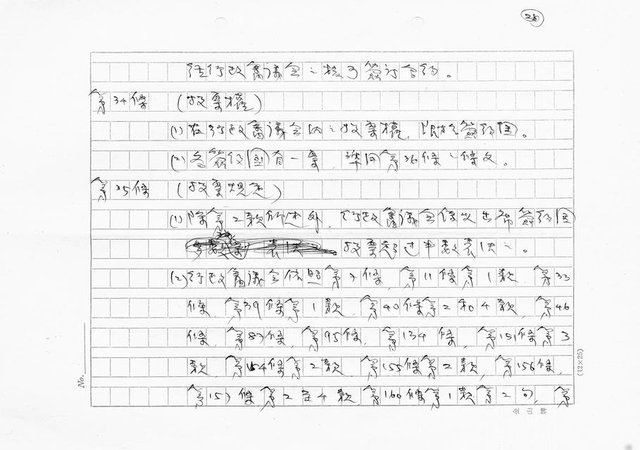 28
經行政會議會之核可簽訂合約。
第34條 (投票權)
(1) 在行政會議會內之投票權,限於簽約國。
(2) 各簽約國有一票,準用第36條之條文。
第35條 (投票規定)
(1) 除第2款所述外,行政會議會係以出席簽約國
投票超过半數表決之。
(2) 行政會議會依照第7條 第11條第1款 第33
條 第39條第1款 第40條第2和4款,第46
條,第87條,第95條,第134條,第151條第3
款 第154條第2款 第155條第2款,第156條,
第157條第2至4款,第160條第1款第2句,第
No.
(12×25)